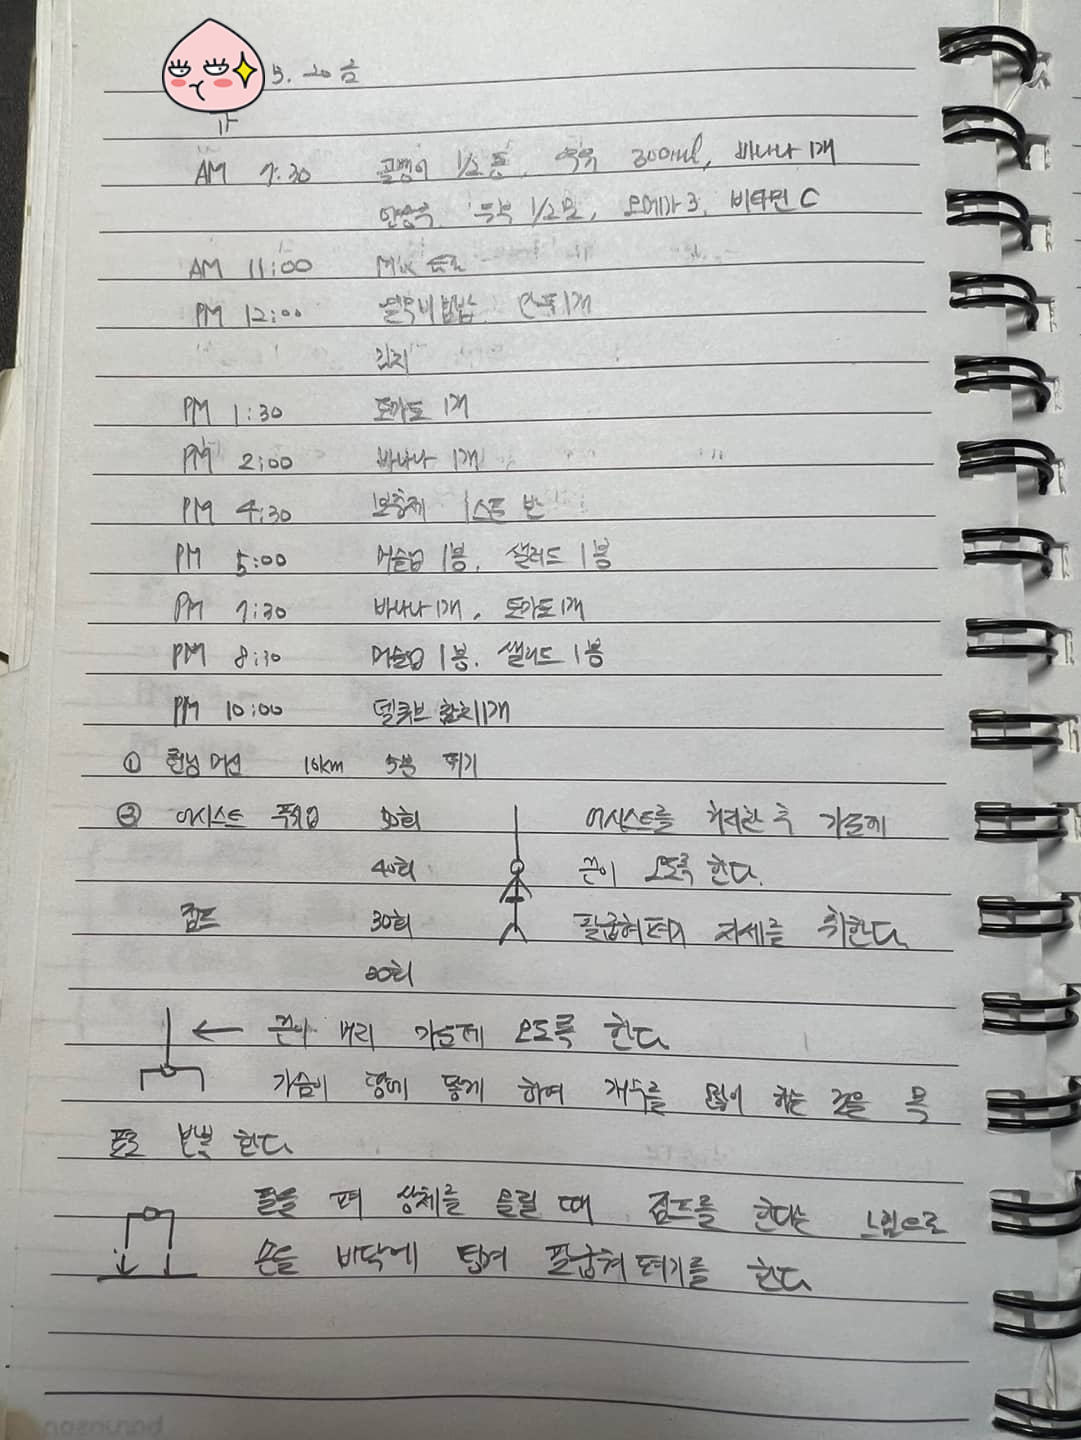 5. 20 금
AM 7:30 골뱅이 1/2 통, 우유 300ml, 바나나 1개
두부 1/2모, 오메가3, 비타민C
AM 11:00 Mix
PM 12:00 열무비빔밥, 1개
김치
PM 1:30 토마토 1개
PM 2:00 바나나 1개
PM 4:30 보충제 1스푼 반
PM 5:00 머슬업 1봉, 샐러드 1봉
PM 7:30 바나나 1개, 토마토 1개
PM 8:30 머슬업 1봉, 샐러드 1봉
PM 10:00 델큐브 참치 1개
① 런닝머신 10km 5분 뛰기
② 어시스트 푹쉬업 50회 어시스트를 허리한 후 가운데
40회 끈이 오도록 한다.
점프 30회 팔굽혀펴기 자세를 취한다.
20회
← 끈이 머리 가운데 오도록 한다
가슴이 땅에 닿게 하여 개수를 많이 하는 것을 목
표로 한다
팔을 펴 상체를 올릴 때 점프를 한다는 느낌으로
손을 바닥에 팔굽혀펴기를 한다